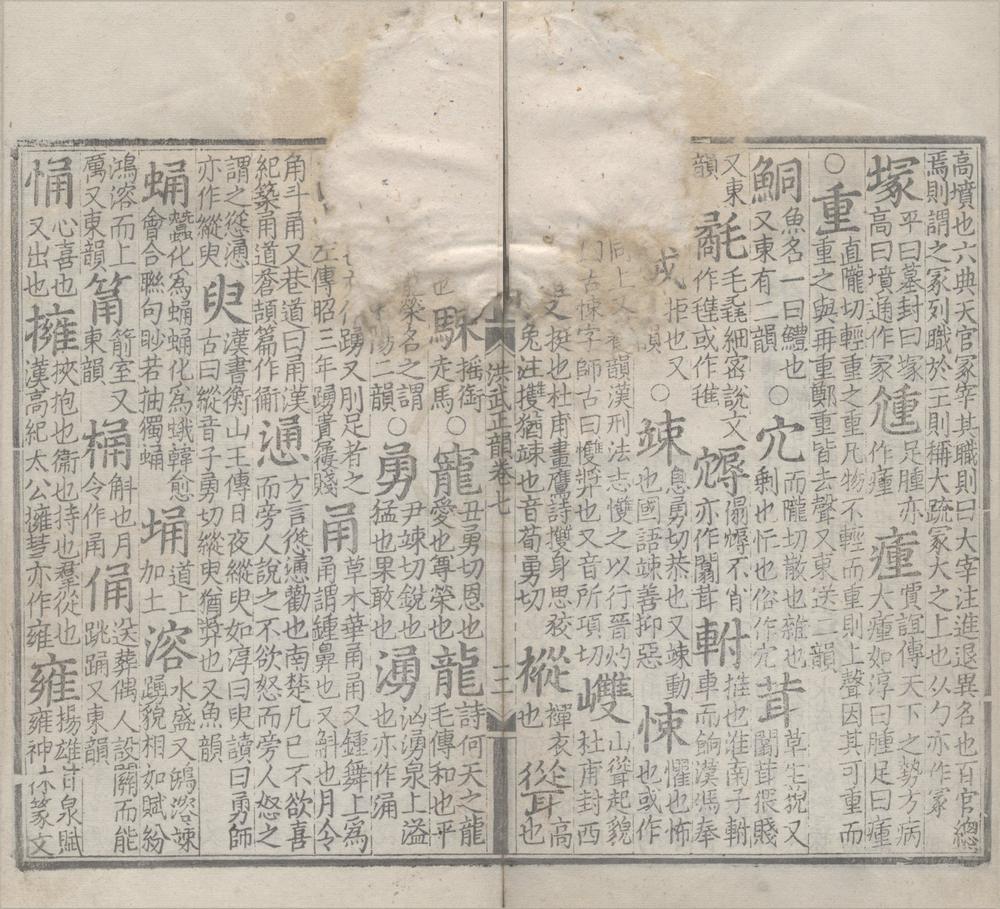 高墳也六典天官冢宰其職則曰大宰注進退異名也百官總焉則謂之冢列職於王則稱大疏冢大之上也从勹亦作冢
塚平曰墓封曰塚高曰墳通作冢尰足腫亦作瘇瘇賈誼傳天下之勢方病大瘇如淳曰腫足曰瘇
○重直隴切輕重之重凡物不輕而重則上聲因其可重而重之與再重鄭重皆去聲又東送二韻
鮦魚名一曰鱧也又東有二韻○宂而隴切散也雜也剩也忙也俗作冗茸草生皃又闒茸猥賤
又東韻氄毛毳細宻說文作或作㝇不肖亦作闒茸軵推也淮南子軵車而餉漢馮奉
戎拒也又韻○竦息勇切恭也又竦動也國語竦善抑惡悚懼也怖也或作
同上又韻漢刑法志㩳之以行晉灼曰古悚字師古曰㩳奬也又音所項切㠝山聳起貌杜甫封西
又挺也杜甫畫鷹詩㩳身思狡兔注㩳猶竦也音荀勇切樅禪衣也聳企高也
洪武正韻卷七 十二
也駷搖銜走馬○寵丑勇切恩也愛也尊榮也龍詩何天之龍毛傳和也平
榮名之謂二韻○勇尹竦切銳也猛也果敢也湧洶湧泉上溢也亦作涌
踊又刖足者之左傳昭三年踊貴屨賤甬草木華甬甬又鍾舞上為甬甬謂鍾鼻也又斛也月令
角斗甬又巷道曰甬漢紀築甬道蒼頡篇作𧗴慂方言慫慂勸也南楚凡己不欲喜而旁人說之不欲怒而旁人怒之
謂之慫慂亦作縱臾臾漢書衡山王傳日夜縱臾如淳曰臾讀曰勇師古曰縱音子勇切縱臾猶奬也又魚韻
蛹蠶化為蛹蛹化為蛾韓愈會合聯句眇若抽獨蛹埇道上加土溶水盛又鴻溶竦踴貌相如賦紛
鴻溶而上厲又東韻筩箭室又東韻桶斛也月令作甬俑送葬偶人設關而能跳踊又東韻
悀心喜也又出也擁挾抱也衞也持也羣從也漢高紀太公擁彗亦作雍雍揚雄甘泉賦雍神休篆文